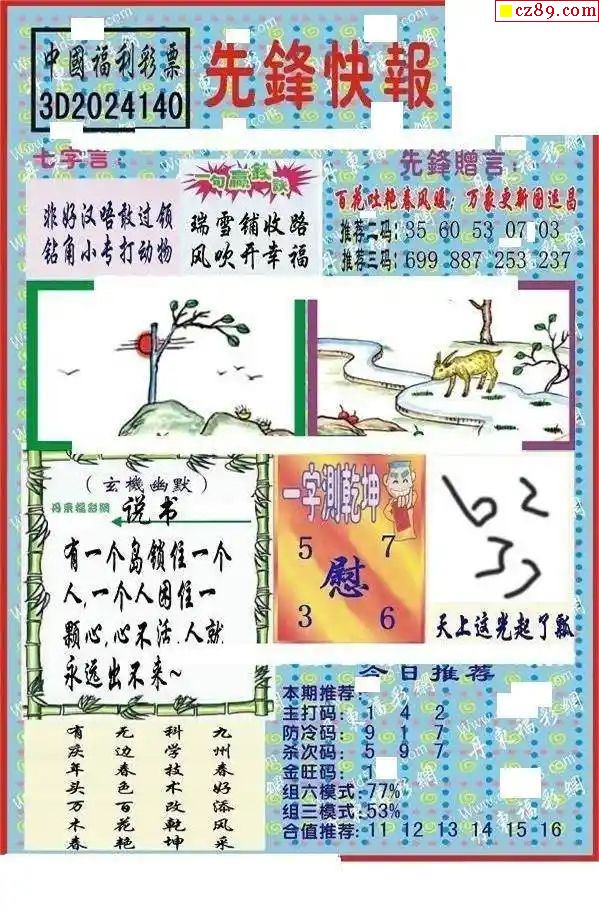 cz89.com
中國福利彩票
3D2024140
先鋒快報
七字言：
非好汉唔敢过领
钻角小专打动物
一句赢錢訣
瑞雪铺收路
风吹开幸福
先鋒贈言：
百花吐艳春风暖；万象更新国运昌
推荐二码：35 60 53 07 03
推荐三码：699 887 253 237
（玄機幽默）
丹東福彩網
说书
有一个岛锁住一个
人,一个人困住一
颗心,心不活,人就
永远出不来~
一字測乾坤
5 7
慰
3 6
天上这光起了瓢
今日推荐
本期推荐：
主打码：1 4 2
防冷码：9 1 7
杀次码：5 9 7
金旺码：1
组六模式：77%
组三模式：53%
合值推荐：11 12 13 14 15 16
有庆年头万木春
无边春色百花艳
科学技术改乾坤
九州春好添风采